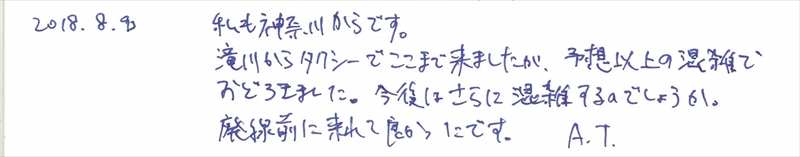 2018.8.9 私も神奈川からです。
滝川からタクシーでここまで来ましたが、予想以上の混雑で
おどろきました。今後はさらに混雑するのでしょうか。
廃線前に来れて良かったです。 A.T.